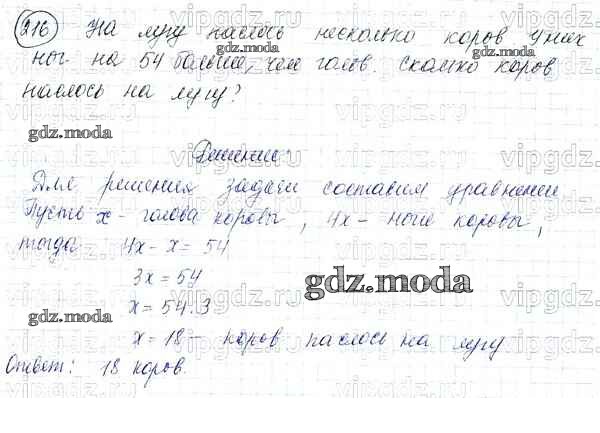 216 На лугу паслось несколько коров У них
ног на 54 больше, чем голов. Сколько коров
паслось на лугу?
gdz.moda
gdz.moda
Решение:
Для решения задачи составим уравнение
Пусть x - голова коровы, 4x - ноги коровы,
тогда 4x - x = 54
3x = 54
gdz.moda
x = 54:3
gdz.moda
x = 18 - коров паслось на лугу
Ответ: 18 коров.